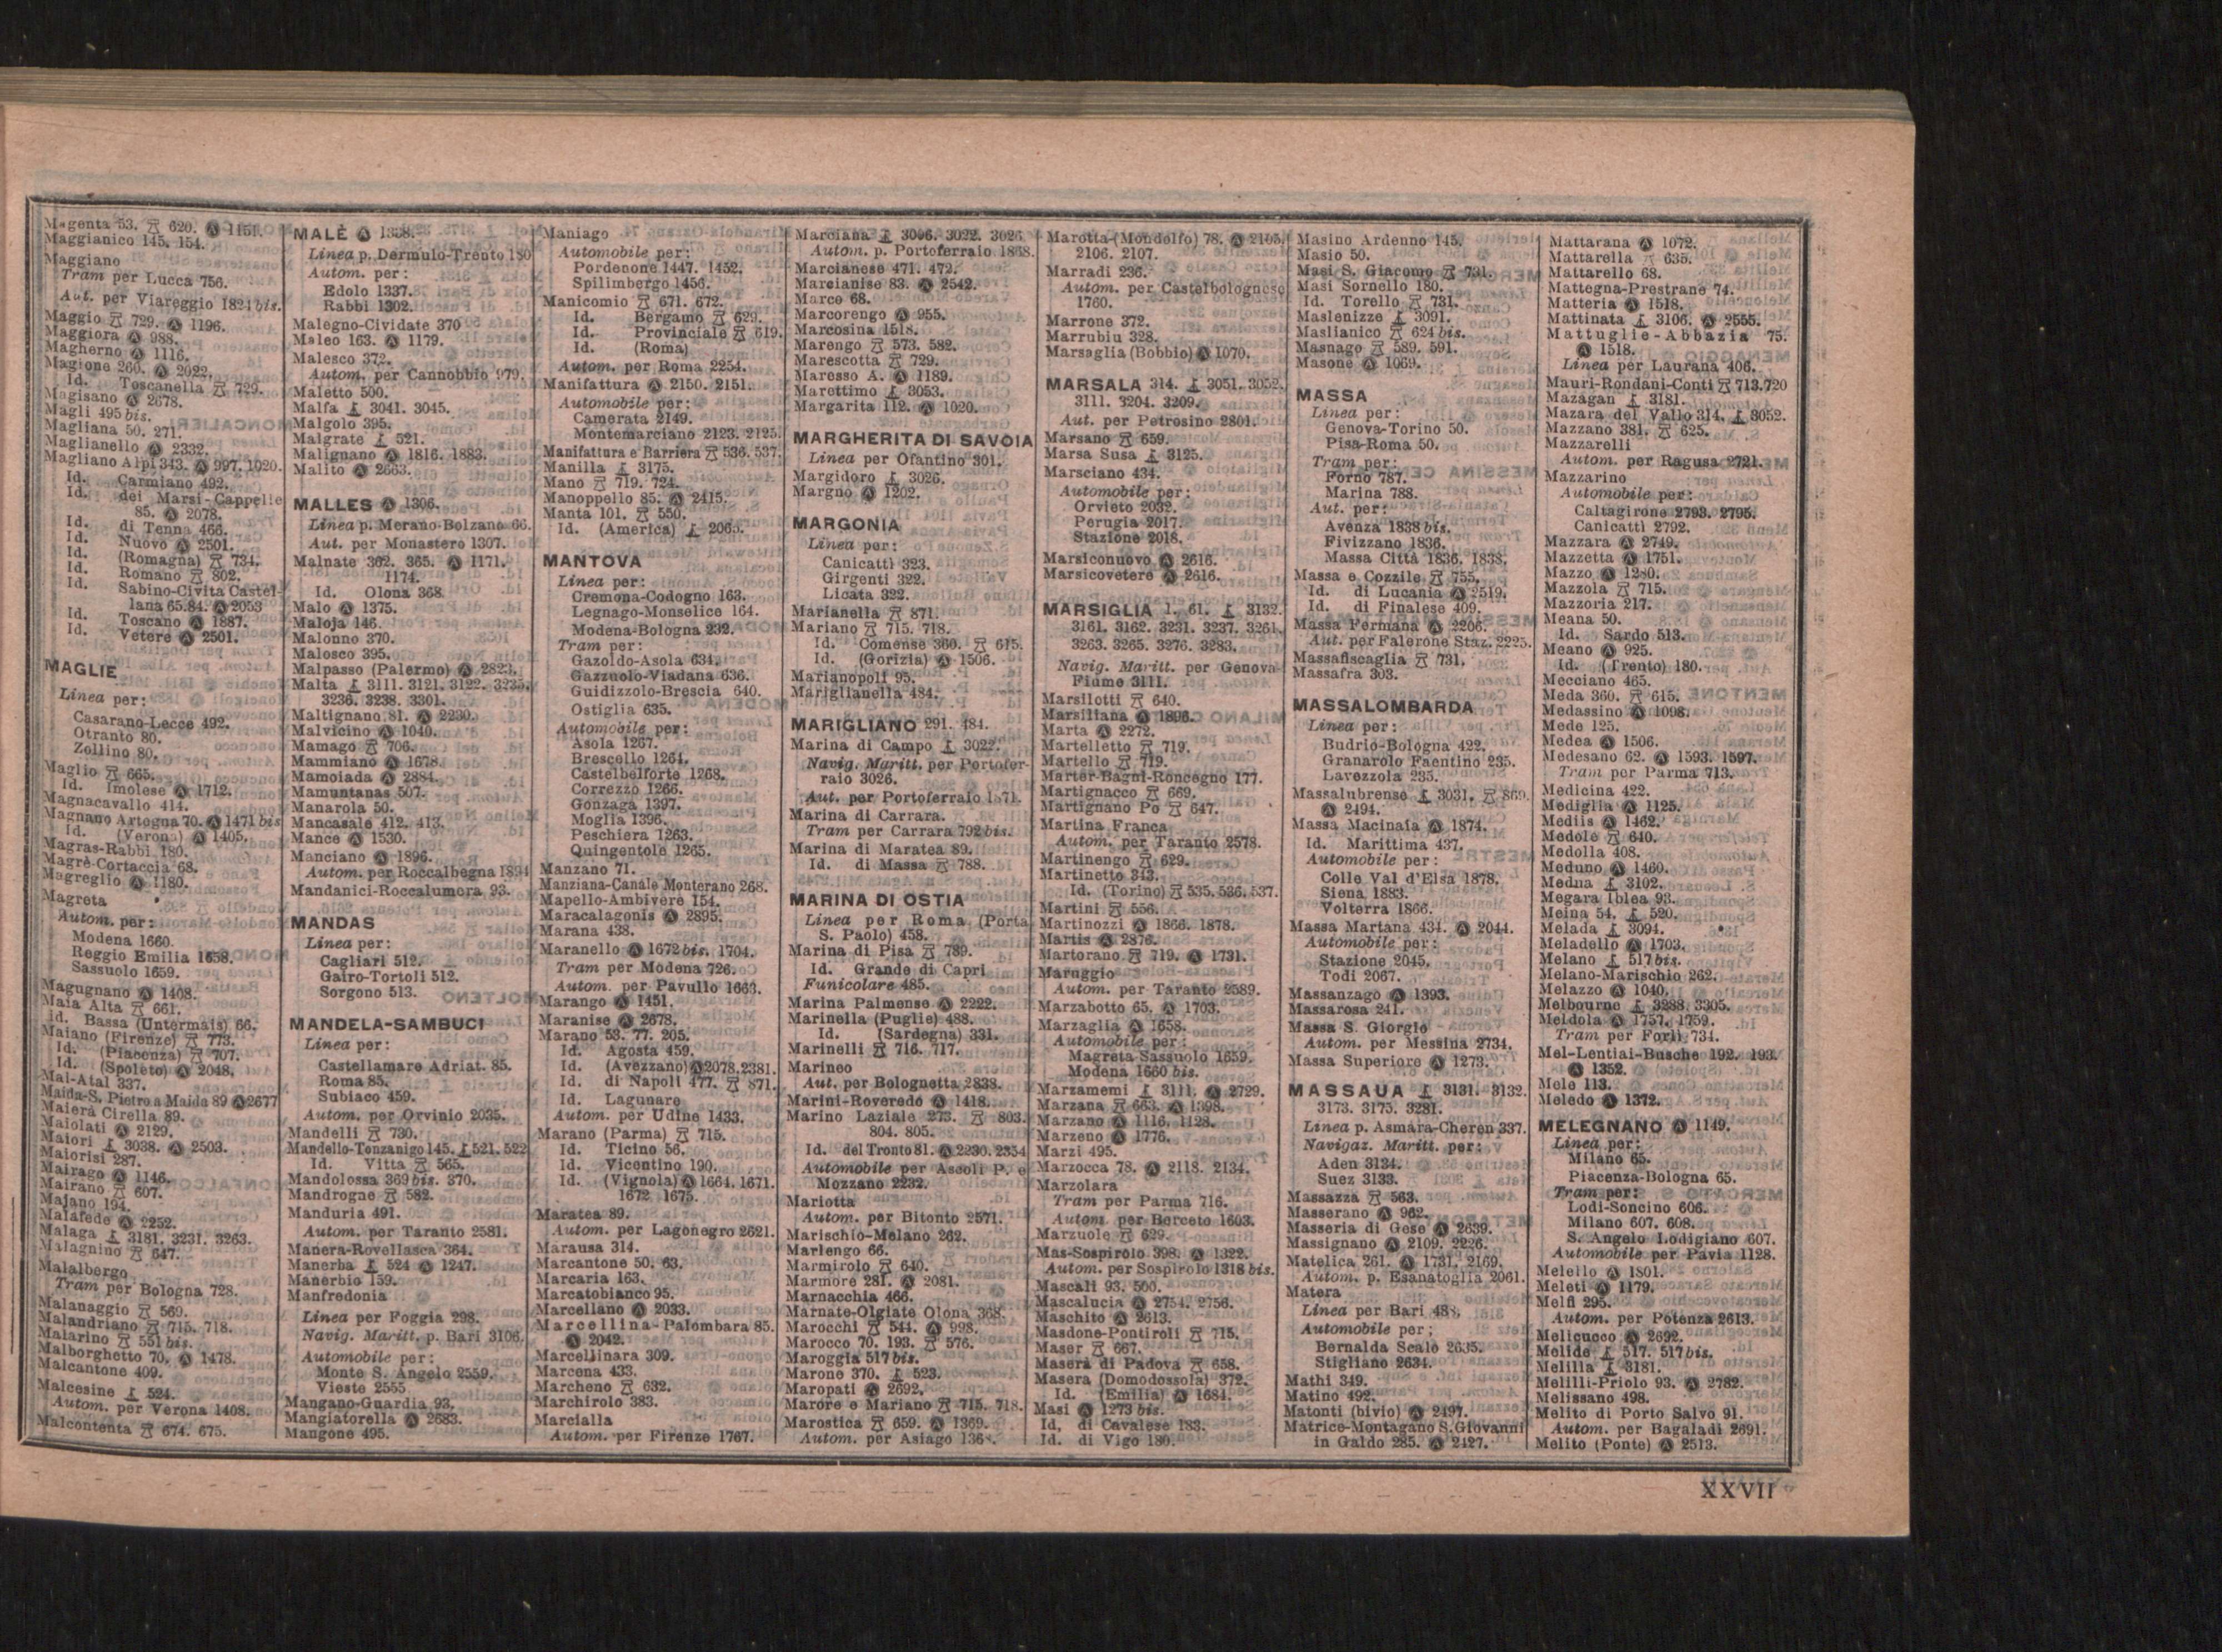 Magenta 53. 620. Ⓐ 1151.
Maggianico 145. 154.
Maggiano
Tram per Lucca 756.
Aut. per Viareggio 1824 bis.
Maggio 729. Ⓐ 1196.
Maggiora Ⓐ 988.
Magherno Ⓐ 1116.
Magione 260. Ⓐ 2022.
Id. Toscanella 729.
Magisano Ⓐ 2678.
Magli 495 bis.
Magliana 50. 271.
Maglianello Ⓐ 2332.
Magliano Alpi 343. Ⓐ 997. 1020.
Id. Carmiano 492.
Id. dei Marsi-Cappelle
85. Ⓐ 2078.
Id. di Tenna 466.
Id. Nuovo Ⓐ 2501.
Id. (Romagna) 734.
Id. Romano 802.
Id. Sabino-Civita Castel-
lana 65.84. Ⓐ 2053
Id. Toscano Ⓐ 1887.
Id. Vetere Ⓐ 2501.
MAGLIE
Linea per:
Casarano-Lecce 492.
Otranto 80.
Zollino 80.
Maglio 665.
Id. Imolese Ⓐ 1712.
Magnacavallo 414.
Magnano Artegna 70. Ⓐ 1471 bis
Id. (Verona) Ⓐ 1405.
Magras-Rabbi 180.
Magrè-Cortaccia 68.
Magreglio Ⓐ 1180.
Magreta
Autom. per:
Modena 1660.
Reggio Emilia 1658.
Sassuolo 1659.
Magugnano Ⓐ 1408.
Maia Alta 661.
Id. Bassa (Untermais) 66.
Maiano (Firenze) 773.
Id. (Piacenza) 707.
Id. (Spoleto) Ⓐ 2048.
Mai-Atal 337.
Maida-S. Pietro a Maida 89 Ⓐ 2677
Maierà Cirella 89.
Maiolati Ⓐ 2129.
Maiori 3038. Ⓐ 2503.
Maiorisi 287.
Mairago Ⓐ 1146.
Mairano 607.
Majano 194.
Malafede Ⓐ 2252.
Malaga 3181. 3231. 3263.
Malagnino 647.
Malalbergo
Tram per Bologna 728.
Malanaggio 569.
Malandriano 715. 718.
Malarino 551 bis.
Malborghetto 70. Ⓐ 1478.
Malcantone 409.
Malcesine 524.
Autom. per Verona 1408.
Malcontenta 674. 675.
MALÈ Ⓐ 1358.
Linea p. Dermulo-Trento 180
Autom. per:
Edolo 1337.
Rabbi 1302.
Malegno-Cividate 370
Maleo 163. Ⓐ 1179.
Malesco 372.
Autom. per Cannobbio 979.
Maletto 500.
Malfa 3041. 3045.
Malgolo 395.
Malgrate 521.
Malignano Ⓐ 1816. 1883.
Malito Ⓐ 2663.
MALLES Ⓐ 1306.
Linea p. Merano-Bolzano 66.
Aut. per Monastero 1307.
Malnate 362. 365. Ⓐ 1171.
1174.
Id. Olona 368
Malo Ⓐ 1375.
Maloja 146.
Malonno 370.
Malosco 395.
Malpasso (Palermo) Ⓐ 2823.
Malta 3111. 3121. 3122. 3235.
3236. 3238. 3301.
Maltignano 81. Ⓐ 2230.
Malvicino Ⓐ 1040.
Mamago 706.
Mammiano Ⓐ 1678.
Mamoiada Ⓐ 2884.
Mamuntanas 507.
Manarola 50.
Mancasale 412. 413.
Mance Ⓐ 1530.
Manciano Ⓐ 1896.
Autom. per Roccalbegna 1894
Mandanici-Roccalumera 93.
MANDAS
Linea per:
Cagliari 512.
Gairo-Tortolì 512.
Sorgono 513.
MANDELA-SAMBUCI
Linea per:
Castellamare Adriat. 85.
Roma 85.
Subiaco 459.
Autom. per Orvinio 2035.
Mandelli 730.
Mandello-Tonzanigo 145. 521. 522
Id. Vitta 565.
Mandolossa 369 bis. 370.
Mandrogne 582.
Manduria 491.
Autom. per Taranto 2581.
Manera-Rovellasca 364.
Manerba 524 Ⓐ 1247.
Manerbio 159.
Manfredonia
Linea per Foggia 298.
Navig. Maritt. p. Bari 3106.
Automobile per:
Monte S. Angelo 2559.
Vieste 2555
Mangano-Guardia 93.
Mangiatorella Ⓐ 2683.
Mangone 495.
Maniago
Automobile per:
Pordenone 1447. 1452.
Spilimbergo 1456.
Manicomio 671. 672.
Id. Bergamo 629.
Id. Provinciale 619.
Id. (Roma)
Autom. per Roma 2254.
Manifattura Ⓐ 2150. 2151.
Automobile per:
Camerata 2149.
Montemarciano 2123. 2125.
Manifattura e Barriera 536. 537.
Manilla 3175.
Mano 719. 724.
Manoppello 85. Ⓐ 2415.
Manta 101. 550.
Id. (America)
MANTOVA
Linea per:
Cremona-Codogno 163.
Legnago-Monselice 164.
Modena-Bologna 232.
Tram per:
Gazoldo-Asola 634.
Gazzuolo-Viadana 636.
Guidizzolo-Brescia 640.
Ostiglia 635.
Automobile per:
Asola 1267.
Brescello 1264.
Castelbelforte 1268.
Correzzo 1266.
Gonzaga 1397.
Moglia 1396.
Peschiera 1263.
Quingentole 1265.
Manzano 71.
Manziana-Canale Monterano 268.
Mapello-Ambivere 154.
Maracalagonis Ⓐ 2895.
Marana 438.
Maranello Ⓐ 1672 bis. 1704.
Tram per Modena 726.
Autom. per Pavullo 1663.
Marango Ⓐ 1451.
Maranise Ⓐ 2678.
Marano 53. 77. 205.
Id. Agosta 459.
Id. (Avezzano) Ⓐ 2078. 2381.
Id. di Napoli 477. 871.
Id. Lagunare
Autom. per Udine 1433.
Marano (Parma) 715.
Id. Ticino 56.
Id. Vicentino 190.
Id. (Vignola) Ⓐ 1664. 1671.
1672 1675.
Maratea 89.
Autom. per Lagonegro 2621.
Marausa 314.
Marcantone 50. 63.
Marcaria 163.
Marcatobianco 95.
Marcellano Ⓐ 2033.
Marcellina-Palombara 85.
Ⓐ 2042.
Marcellinara 309.
Marcena 433.
Marcheno 632.
Marchirolo 383.
Marcialla
Autom. per Firenze 1767.
Marciana 3006. 3022. 3026.
Autom. p. Portoferraio 1868.
Marcianese 471. 472.
Marcianise 83. Ⓐ 2542.
Marco 68.
Marcorengo Ⓐ 955.
Marcosina 1518.
Marengo 573. 582.
Marescotta 729.
Maresso A. Ⓐ 1189.
Marettimo 3053.
Margarita 112. Ⓐ 1020.
MARGHERITA DI SAVOIA
Linea per Ofantino 301.
Margidoro 3026.
Margno Ⓐ 1202.
MARGONIA
Linea per:
Canicattì 323.
Girgenti 322.
Licata 322.
Marianella 871.
Mariano 715. 718.
Id. Comense 360. 615.
Id. (Gorizia) Ⓐ 1506.
Marianopoli 95.
Mariglianella 484.
MARIGLIANO 291. 484.
Marina di Campo 3022.
Navig. Maritt. per Portofer-
raio 3026.
Aut. per Portoferraio 1871.
Marina di Carrara.
Tram per Carrara 792 bis.
Marina di Maratea 89.
Id. di Massa 788.
MARINA DI OSTIA
Linea per Roma (Porta
S. Paolo) 458.
Marina di Pisa 789.
Id. Grande di Capri
Funicolare 485.
Marina Palmense Ⓐ 2222.
Marinella (Puglie) 488.
Id. (Sardegna) 331.
Marinelli 716. 717.
Marineo
Aut. per Bolognetta 2838.
Marini-Roveredo Ⓐ 1418.
Marino Laziale 273. 803.
804. 805.
Id. del Tronto 81. Ⓐ 2230. 2354
Automobile per Ascoli P. e
Mozzano 2232.
Mariotta
Autom. per Bitonto 2571.
Marischio-Melano 262.
Marlengo 66.
Marmirolo 640.
Marmore 281. Ⓐ 2081.
Marnacchia 466.
Marnate-Olgiate Olona 368.
Marocchi 544. Ⓐ 998.
Marocco 70. 193. 576.
Maroggia 517 bis.
Marone 370. 523.
Maropati Ⓐ 2692.
Marore e Mariano 715. 718.
Marostica 659. Ⓐ 1369.
Autom. per Asiago
Marotta-(Mondolfo) 78. Ⓐ 2105.
2106. 2107.
Marradi 236.
Autom. per Castelbolognese
1760.
Marrone 372.
Marrubiu 328.
Marsaglia (Bobbio) Ⓐ 1070.
MARSALA 314. 3051. 3052.
3111. 3204. 3209.
Aut. per Petrosino 2801.
Marsano 659.
Marsa Susa 3125.
Marsciano 434.
Automobile per:
Orvieto 2032.
Perugia 2017.
Stazione 2018.
Marsiconuovo Ⓐ 2616.
Marsicovetere Ⓐ 2616.
MARSIGLIA 1. 61. 3132.
3161. 3162. 3231. 3237. 3261.
3263. 3265. 3276. 3283.
Navig. Maritt. per Genova
Fiume 3111.
Marsilotti 640.
Marsiliana Ⓐ 1896.
Marta Ⓐ 2272.
Martelletto 719.
Martello 719.
Marter-Bagni-Roncegno 177.
Martignacco 669.
Martignano Po 647.
Martina Franca
Autom. per Taranto 2578.
Martinengo 629.
Martinetto 343.
Id. (Torino) 535. 536. 537.
Martini 556.
Martinozzi Ⓐ 1866. 1878.
Martis Ⓐ 2876.
Martorano 719. Ⓐ 1731.
Maruggio
Autom. per Taranto 2589.
Marzabotto 65. Ⓐ 1703.
Marzaglia Ⓐ 1658.
Automobile per:
Magreta Sassuolo 1659.
Modena 1660 bis.
Marzamemi 3111. Ⓐ 2729.
Marzana 663. Ⓐ 1398.
Marzano Ⓐ 1116. 1128.
Marzeno Ⓐ 1776.
Marzi 495.
Marzocca 78. Ⓐ 2118. 2134.
Marzolara
Tram per Parma 716.
Autom. per Berceto 1603.
Marzuole 629.
Mas-Sospirolo 398. Ⓐ 1322.
Autom. per Sospirolo 1318 bis.
Mascali 93. 500.
Mascalucia Ⓐ 2754. 2756.
Maschito Ⓐ 2613.
Masdone-Pontiroli 715.
Maser 667.
Maserà di Padova 658.
Masera (Domodossola) 372.
Id. (Emilia) Ⓐ 1684.
Masi Ⓐ 1273 bis.
Id. di Cavalese 183.
Id. di Vigo 180.
Masino Ardenno 145.
Masio 50.
Masi S. Giacomo 731.
Masi Sornello 180.
Id. Torello 731.
Maslenizze 3091.
Maslianico 624 bis.
Masnago 589. 591.
Masone Ⓐ 1069.
MASSA
Linea per:
Genova-Torino 50.
Pisa-Roma 50.
Tram per:
Forno 787.
Marina 788.
Aut. per:
Avenza 1838 bis.
Fivizzano 1836.
Massa Città 1836. 1838.
Massa e Cozzile 755.
Id. di Lucania Ⓐ 2519.
Id. di Finalese 409.
Massa Fermana Ⓐ 2206.
Aut. per Falerone Staz. 2225.
Massafiscaglia 731.
Massafra 303.
MASSALOMBARDA
Linea per:
Budrio-Bologna 422.
Granarolo Faentino 235.
Lavezzola 235.
Massalubrense 3031. 869.
Ⓐ 2494.
Massa Macinaia Ⓐ 1874.
Id. Marittima 437.
Automobile per:
Colle Val d'Elsa 1878.
Siena 1883.
Volterra 1866.
Massa Martana 434. Ⓐ 2044.
Automobile per:
Stazione 2045.
Todi 2067.
Massanzago Ⓐ 1393.
Massarosa 241.
Massa S. Giorgio
Autom. per Messina 2734.
Massa Superiore Ⓐ 1273.
MASSAUA 3131. 3132.
3173. 3175. 3281.
Linea p. Asmara-Cheren 337.
Navigaz. Maritt. per:
Aden 3134.
Suez 3133.
Massazza 563.
Masserano Ⓐ 962.
Masseria di Gese Ⓐ 2639.
Massignano Ⓐ 2109. 2226.
Matelica 261. Ⓐ 1731. 2169.
Autom. p. Esanatoglia 2061.
Matera
Linea per Bari 488.
Automobile per;
Bernalda Scalo 2635.
Stigliano 2634.
Mathi 349.
Matino 492.
Matonti (bivio) Ⓐ 2497.
Matrice-Montagano S. Giovanni
in Galdo 285. Ⓐ 2427.
Mattarana Ⓐ 1072.
Mattarella 635.
Mattarello 68.
Mattegna-Prestrane 74.
Matteria Ⓐ 1518.
Mattinata 3106. Ⓐ 2555.
Mattuglie-Abbazia 75.
Ⓐ 1518.
Linea per Laurana 406.
Mauri-Rondani-Conti 713. 720
Mazagan 3181.
Mazara del Vallo 314. 3052.
Mazzano 381. 625.
Mazzarelli
Autom. per Ragusa 2721.
Mazzarino
Automobile per:
Caltagirone 2793. 2795.
Canicattì 2792.
Mazzara Ⓐ 2749.
Mazzetta Ⓐ 1751.
Mazzo Ⓐ 1280.
Mazzola 715.
Mazzoria 217.
Meana 50.
Id. Sardo 513.
Meano Ⓐ 925.
Id. (Trento) 180.
Mecciano 465.
Meda 360. 615.
Medassino Ⓐ 1098.
Mede 125.
Medea Ⓐ 1506.
Medesano 62. Ⓐ 1593. 1597.
Tram per Parma 713.
Medicina 422.
Mediglia Ⓐ 1125.
Mediis Ⓐ 1462.
Medole 640.
Medolla 408.
Meduno Ⓐ 1460.
Medua 3102.
Megara Iblea 93.
Meina 54. 520.
Melada 3094.
Meladello Ⓐ 1703.
Melano 517 bis.
Melano-Marischio 262.
Melazzo Ⓐ 1040.
Melbourne 3288. 3305.
Meldola Ⓐ 1757. 1759.
Tram per Forlì 734.
Mel-Lentiai-Busche 192. 193.
Ⓐ 1352.
Mele 113.
Meledo Ⓐ 1372.
MELEGNANO Ⓐ 1149.
Linea per:
Milano 65.
Piacenza-Bologna 65.
Tram per:
Lodi-Soncino 606.
Milano 607. 608.
S. Angelo Lodigiano 607.
Automobile per Pavia 1128.
Melello Ⓐ 1801.
Meleti Ⓐ 1179.
Melfi 295.
Autom. per Potenza 2613.
Melicucco Ⓐ 2692.
Melide 517. 517 bis.
Melilla 3181.
Melilli-Priolo 93. Ⓐ 2782.
Melissano 498.
Melito di Porto Salvo 91.
Autom. per Bagaladi 2691.
Melito (Ponte) Ⓐ 2513.
XXVII